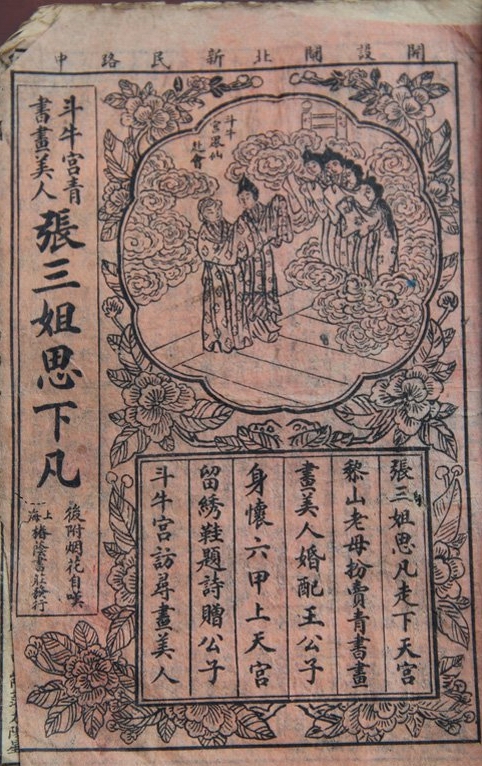 開設閘北新民路中
斗牛
宮眾仙
赴會
張三姐思凡走下天宮
黎山老母扮賣青書畫
畫美人婚配王公子
身懷六甲上天宮
留綉鞋題詩贈公子
斗牛宮訪尋畫美人
斗牛宮青
書畫美人
張三姐思下凡
後附烟花自嘆
上海椿蔭書莊發行